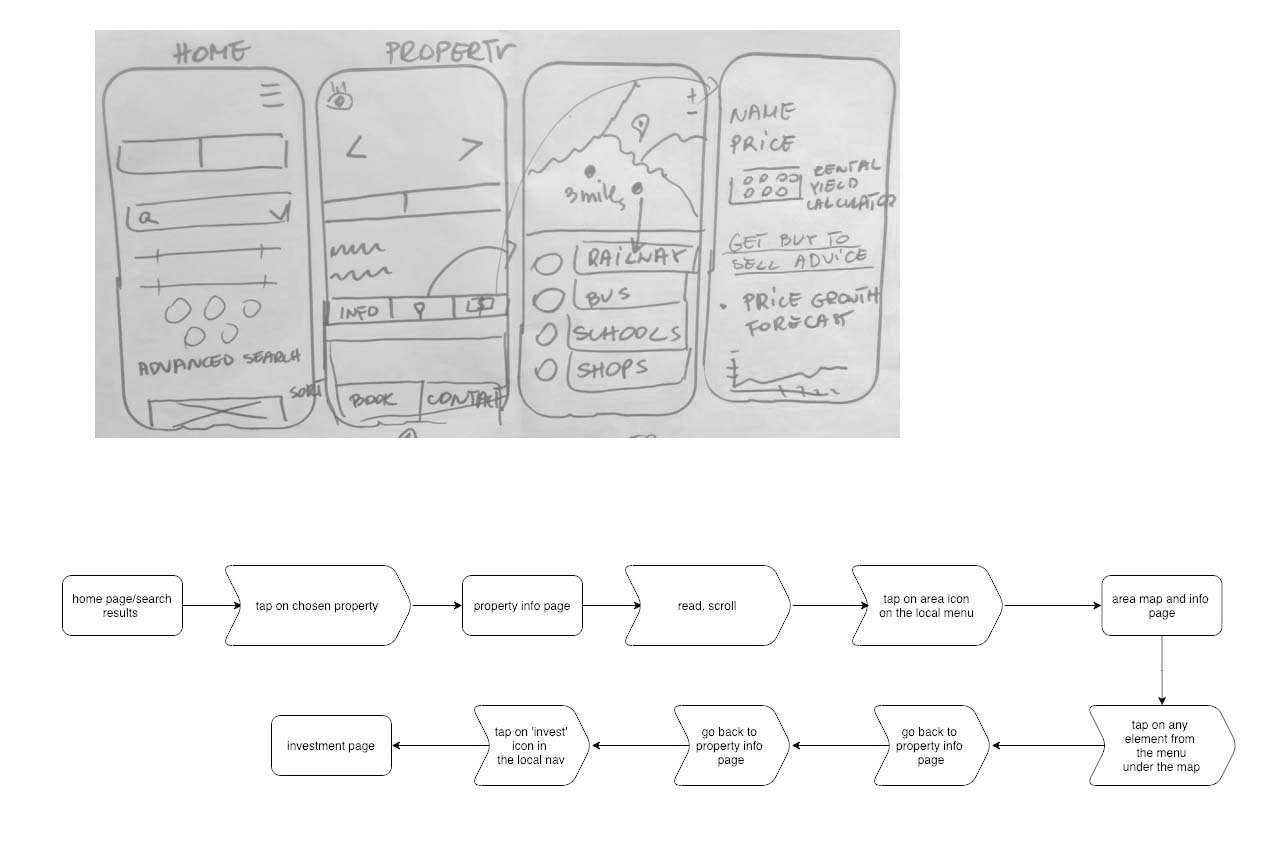 HOME
PROPERTY
ADVANCED SEARCH
SORT
INFO
BOOK
CONTACT
+
-
3 miles
RAILWAY
BUS
SCHOOLS
SHOPS
NAME
PRICE
RENTAL
YIELD
CALCULATOR
GET BUY TO
SELL ADVICE
• PRICE GROWTH
FORECAST
home page/search
results
tap on chosen property
property info page
read, scroll
tap on area icon
on the local menu
area map and info
page
investment page
tap on 'invest'
icon in
the local nav
go back to
property info
page
go back to
property info
page
tap on any
element from
the menu
under the map